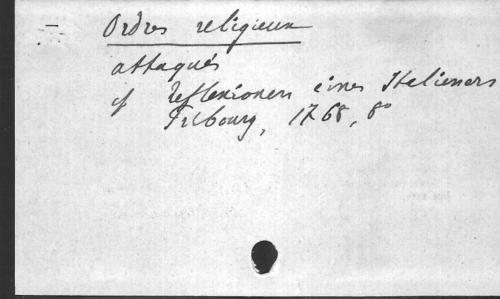 Ordres religieux
attaqués
cf Reflexionen eines Italieners
Fribourg, 1768, 8°